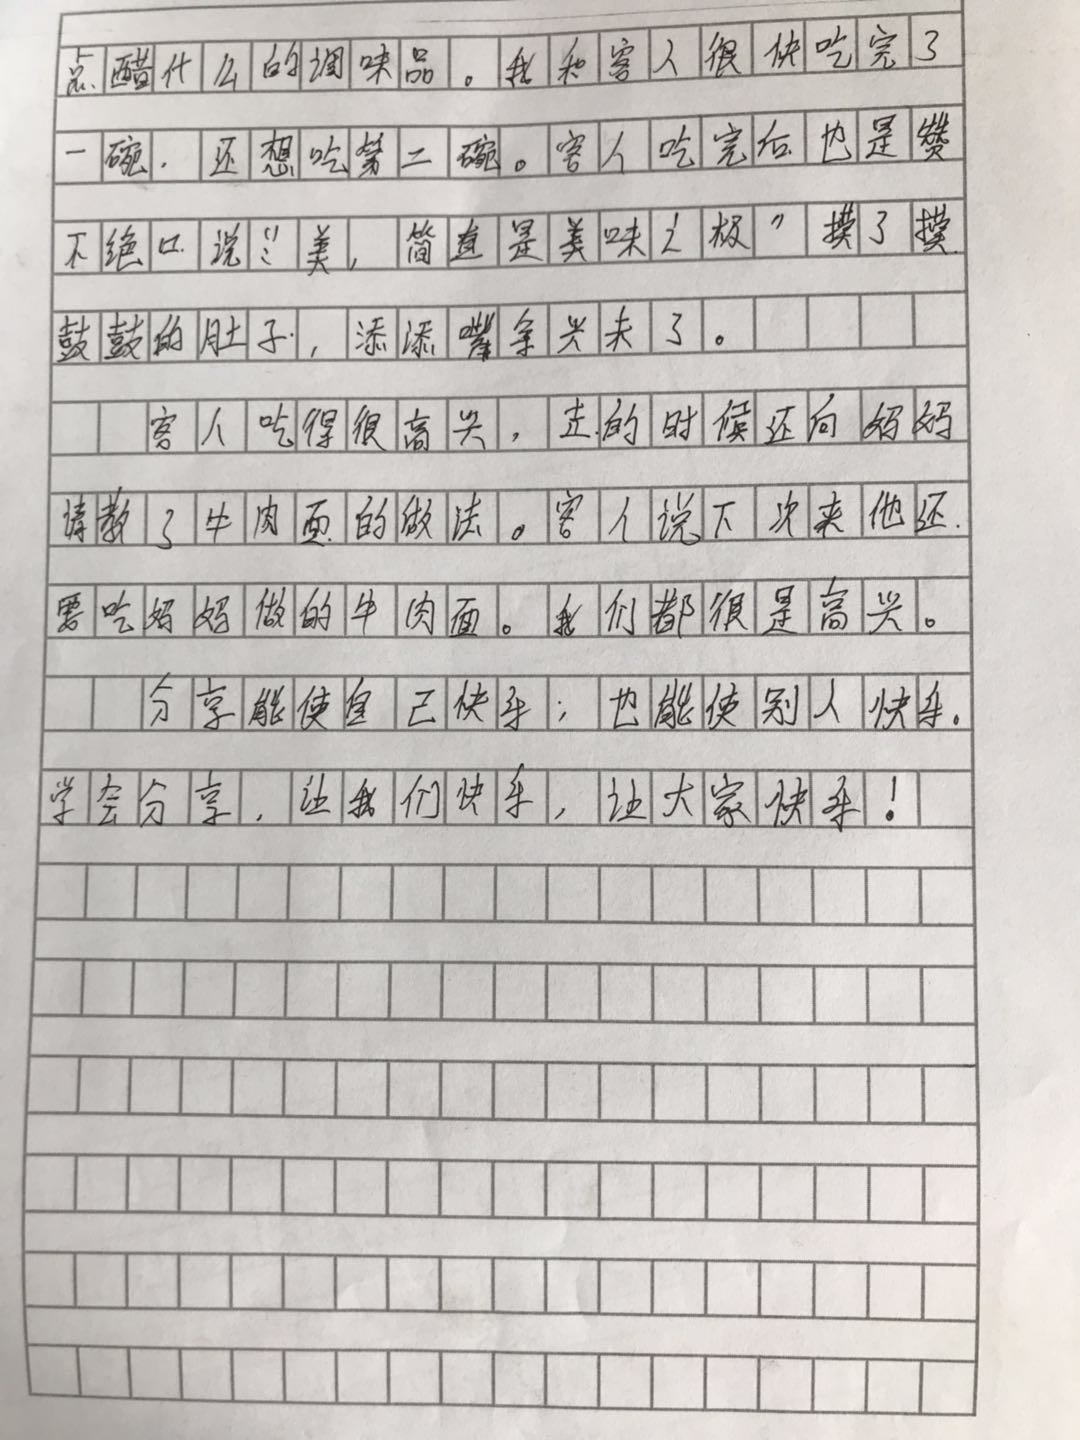 点醋什么的调味品。我和客人很快吃完了
一碗．还想吃第二碗。客人吃完后也是赞
不绝口说：“美，简直是美味之极”摸了摸
鼓鼓的肚子，添添嘴拿兴夫了。
客人吃得很高兴，走的时候还向妈妈
请教了牛肉面的做法。客人说下次来他还
要吃妈妈做的牛肉面。我们都很是高兴。
分享能使自己快乐；也能使别人快乐.
学会分享，让我们快乐，让大家快乐！